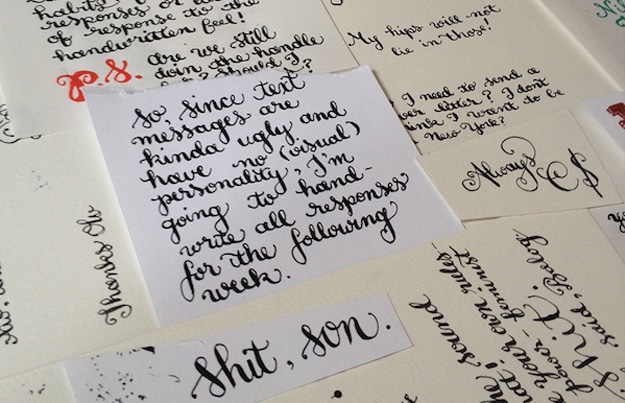 habits
responses or
of response to the
handwritten feel!
P.S. Are we still
doin the handle
? Should I
?
My hips will not
lie in those!
I need to send a
letter? I don't
I want to be
New York?
So, since text
messages are
kinda ugly and
have no (visual)
personality, I'm
going to hand-
write all responses
for the following
week.
Always
C$
Thanks Olv
Shit, son.
sound
your own rules
power- feminist
Shit
said, Being